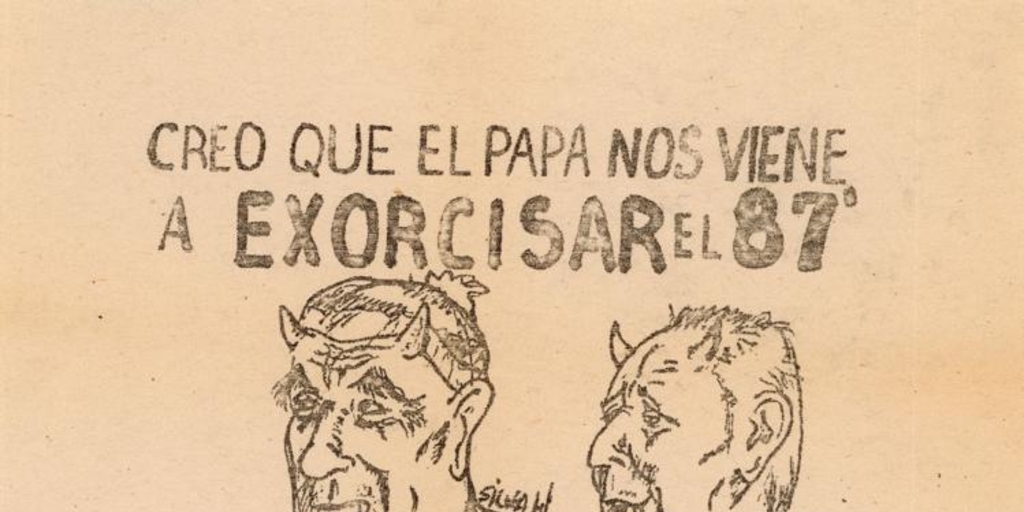 CREO QUE EL PAPA NOS VIENE
A EXORCISAR EL 87'